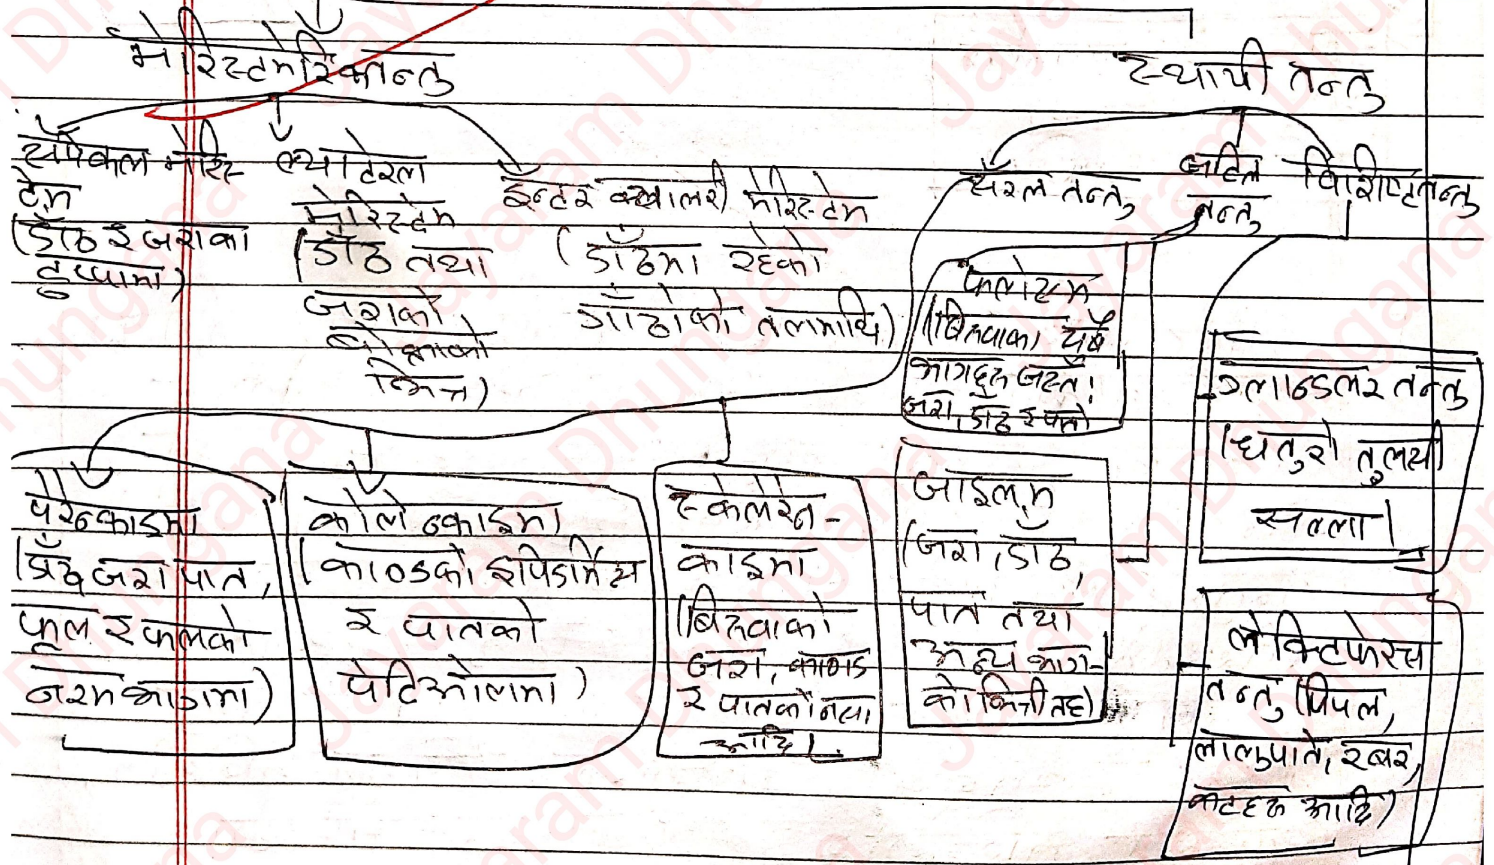 मेरिस्टमेटिक तन्तु
स्थायी तन्तु
एपिकल मेरिस्टेम
(डाँठ र जराका टुप्पामा)
ल्याटेरल
मेरिस्टेम
(डाँठ तथा
जराको
बोक्राको
भित्र)
इन्टर क्यालरी मेरिस्टेम
(डाँठमा रहेको
गाँठोको तलमाथि)
सरल तन्तु
जटिल
तन्तु
विशिष्ट तन्तु
फ्लोएम
(बिरुवाका सबै
भागहरु जस्तै।
जरा, डाँठ र पात)
जाइलम
(जरा, डाँठ,
पात तथा
अन्य भाग-
को भित्री तह)
ग्लान्डुलर तन्तु
(धतुरो तुलसी
सल्ला)
लेक्टिफेरस
तन्तु (पिपल,
लालुपाते, रबर,
कटहर आदि)
पेरेन्काइमा
(डाँठ जरा पात,
फूल र फलको
नरम भागमा)
कोलेन्काइमा
(काण्डको इपिडर्मिस
र पातको
पेटिओलमा)
स्क्लेरेन-
काइमा
(बिरुवाको
जरा, काण्ड
र पातको नशा
आदि।
Jayaram Dhungana